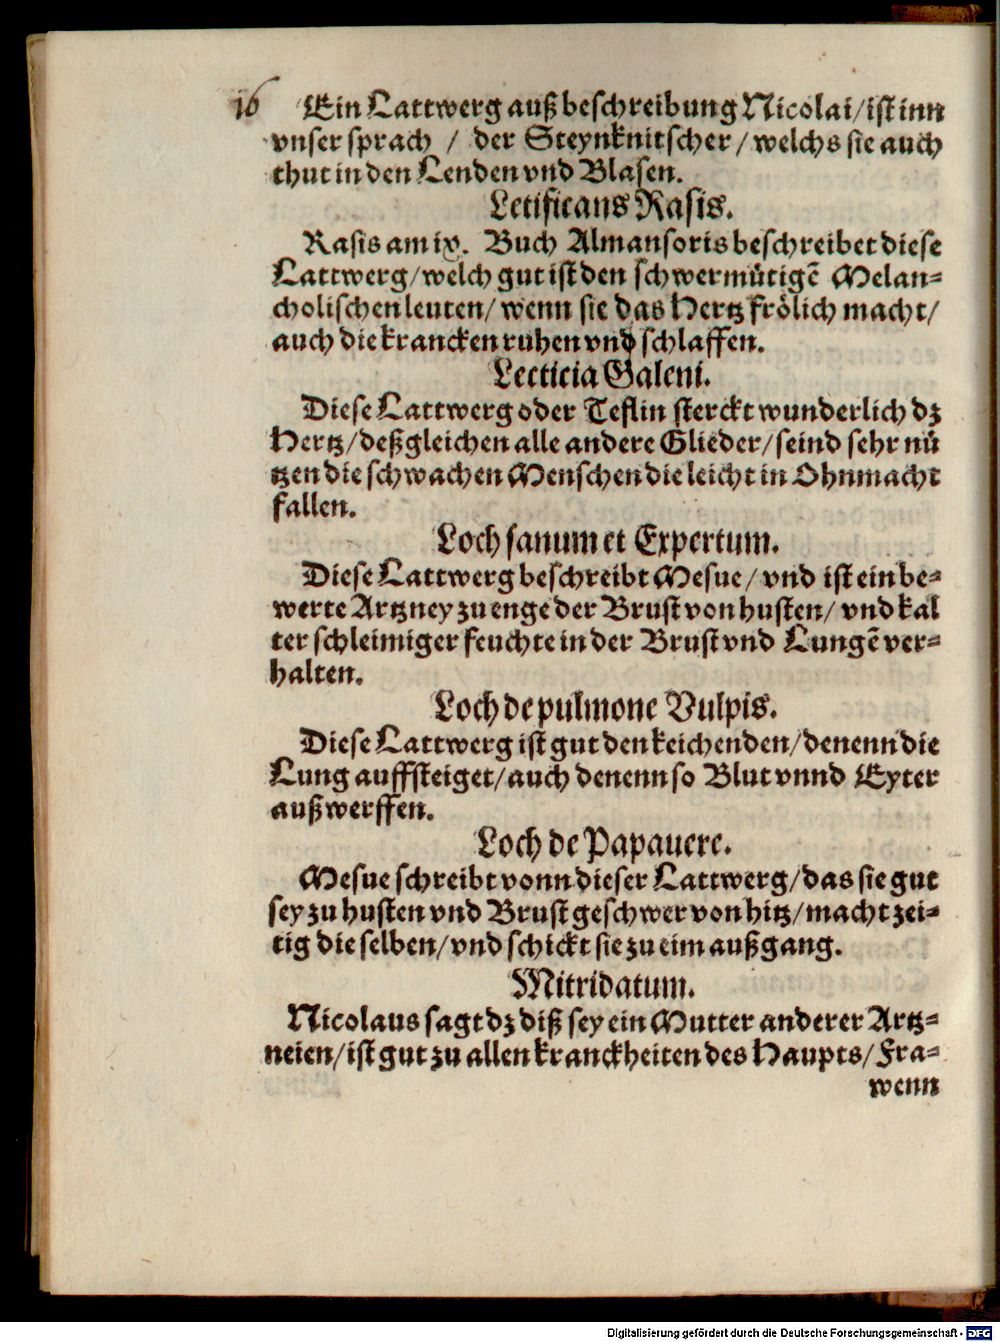 16
Ein Lattwerg auß beschreibung Nicolai/ ist inn
vnser sprach / der Steynknitscher/ welchs sie auch
thut in den Lenden vnd Blasen.
Letificans Rasis.
Rasis am ix. Buch Almansoris beschreibet diese
Lattwerg/ welch gut ist den schwermuͤtigē Melan⸗
cholischen leuten/ wenn sie das Hertz froͤlich macht/
auch die krancken ruhen vnd schlaffen.
Lecticia Galeni.
Diese Lattwerg oder Teflin sterckt wunderlich dz
Hertz/ deßgleichen alle andere Glieder/ seind sehr nuͤ
tzen die schwachen Menschen die leicht in Ohnmacht
fallen.
Loch sanum et Expertum.
Diese Lattwerg beschreibt Mesue/ vnd ist ein be⸗
werte Artzney zu enge der Brust von husten/ vnd kal
ter schleimiger feuchte in der Brust vnd Lungē ver⸗
halten.
Loch de pulmone Vulpis.
Diese Lattwerg ist gut den keichenden/ denenn die
Lung auffsteiget/ auch denenn so Blut vnnd Eyter
außwerffen.
Loch de Papauere.
Mesue schreibt vonn dieser Lattwerg/ das sie gut
sey zu husten vnd Brust geschwer von hitz/ macht zei⸗
tig die selben/ vnd schickt sie zu eim außgang.
Mitridatum.
Nicolaus sagt dz diß sey ein Mutter anderer Artz⸗
neien/ ist gut zu allen kranckheiten des Haupts/ Fra⸗
wenn
Digitalisierung gefördert durch die Deutsche Forschungsgemeinschaft - DFG